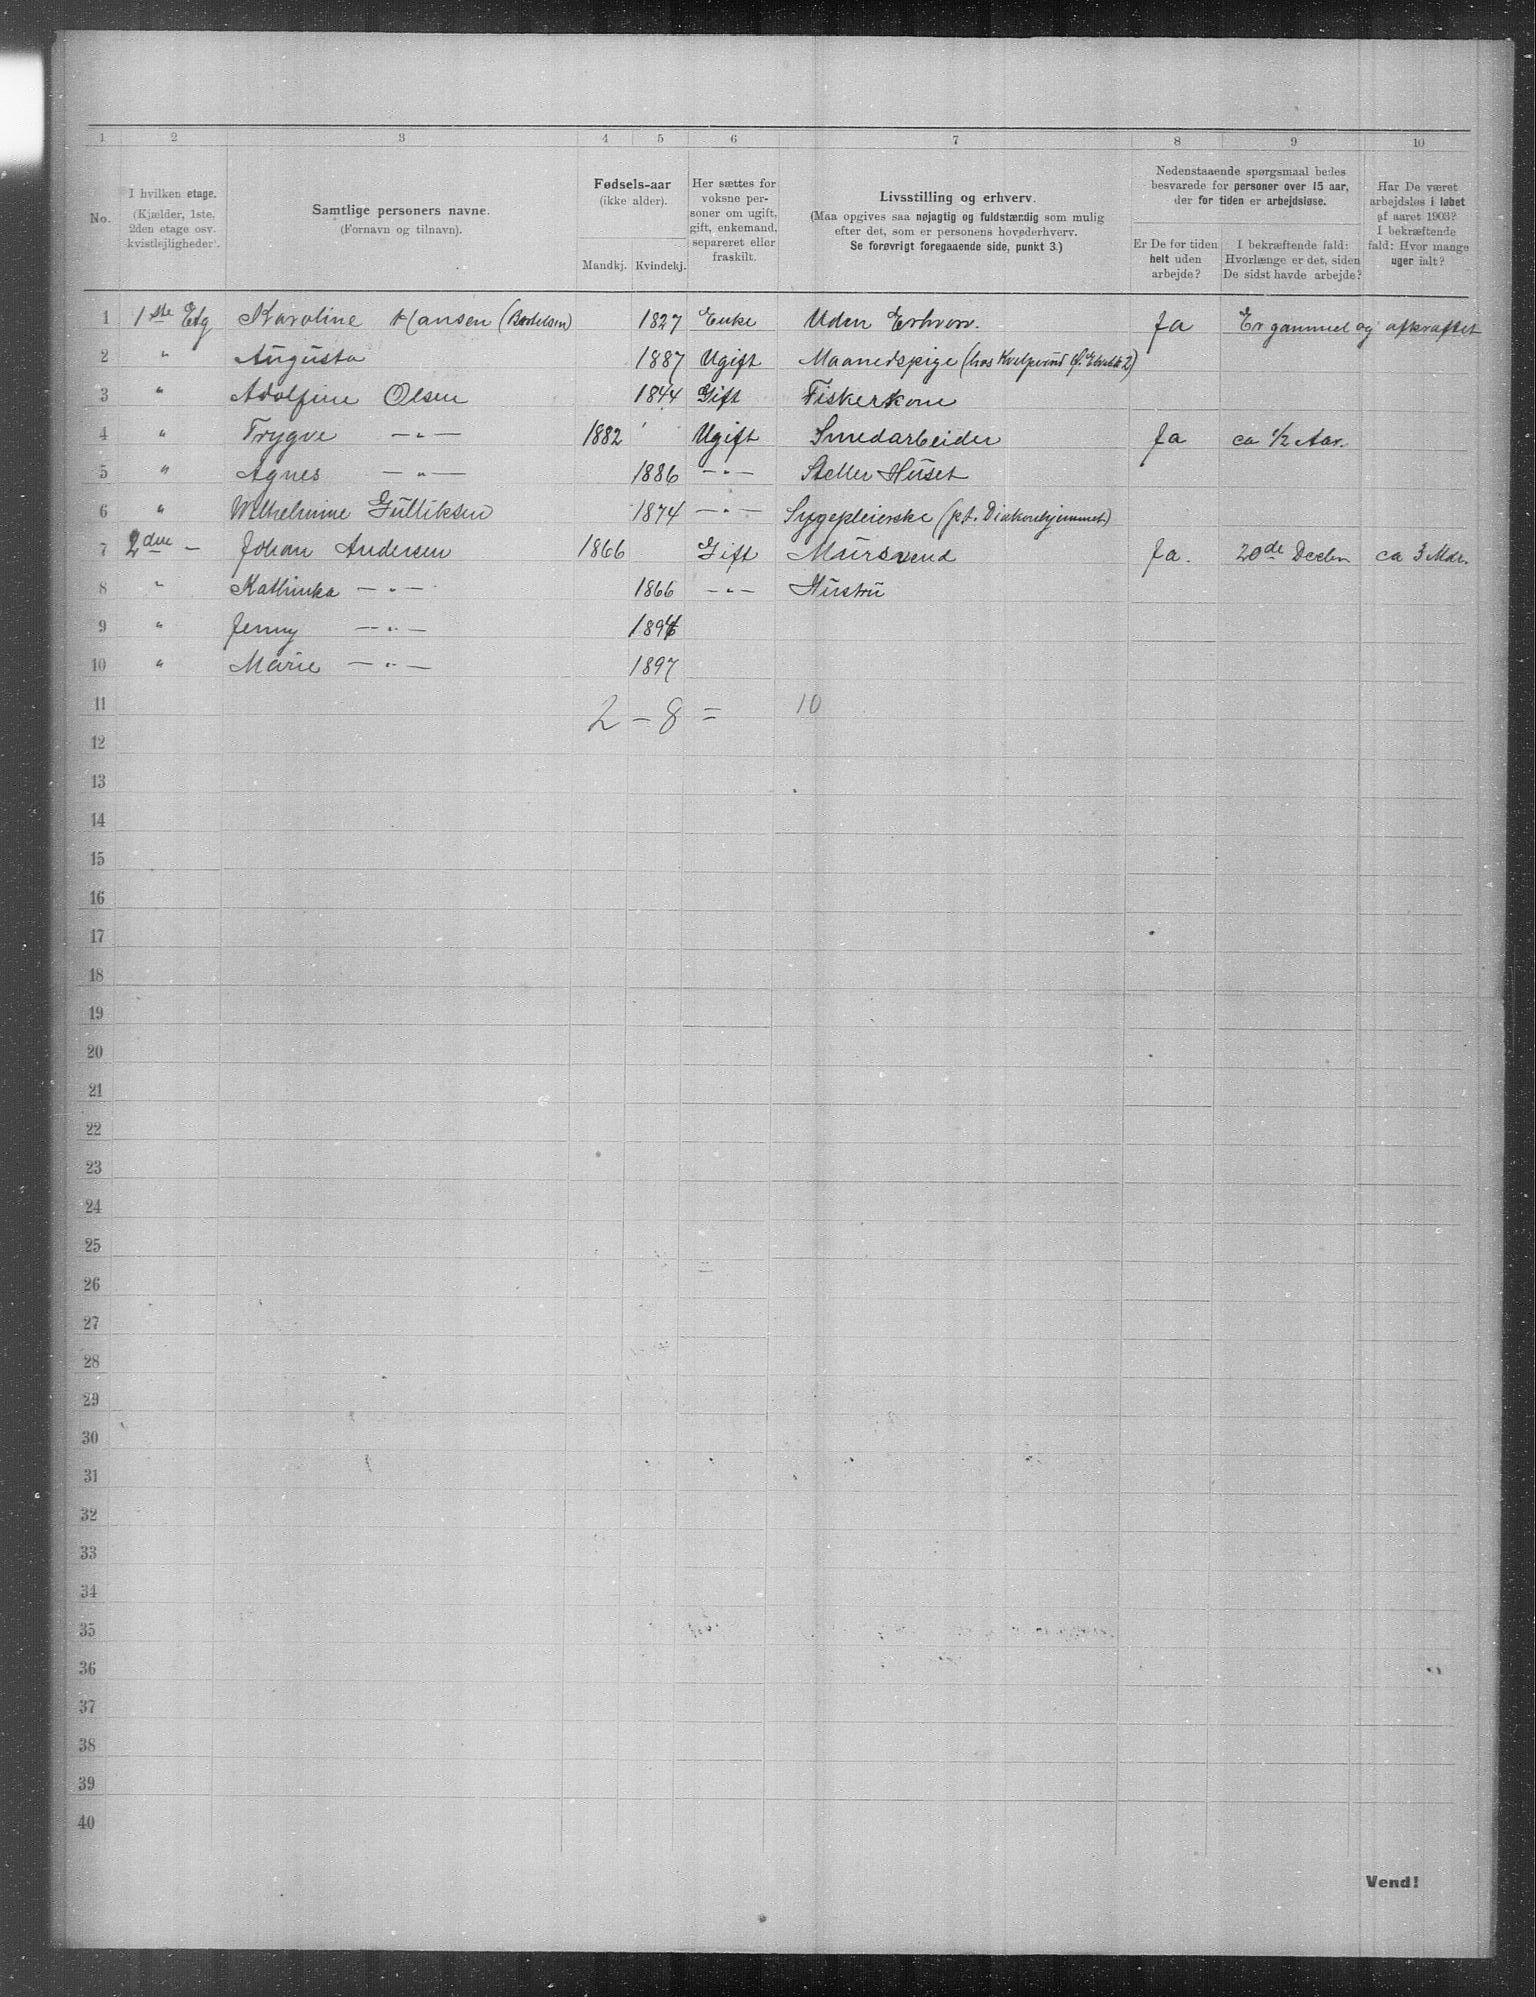 1 2 3 4 5 6 7 8 9 10
No.
I hvilken etage.
(Kjælder, 1ste, 2den etage osv. kvistlejligheder).
Samtlige personers navne.
(Fornavn og tilnavn).
Fødsels-aar
(ikke alder).
Mandkj. Kvindekj.
Her sættes for voksne personer om ugift, gift, enkemand, separeret eller fraskilt.
Livsstilling og erhverv.
(Maa opgives saa nøjagtig og fuldstændig som mulig
efter det, som er personens hovederhverv.
Se forøvrigt foregaaende side, punkt 3.)
Nedenstaaende spørgsmaal bedes
besvarede for personer over 15 aar,
der for tiden er arbejdsløse.
Er De for tiden helt uden arbejde?
I bekræftende fald: Hvorlænge er det, siden De sidst havde arbejde?
Har De været arbejdsløs i løbet af aaret 1903? I bekræftende fald: Hvor mange uger ialt?
1 1ste Etg Karoline Hansen (Bertelsen) 1827 Enke Uden Erhverv. Ja Er gammel og afkræftet
2 " Augusta 1887 Ugift Maanedspige (hos
3 " Adolfine Olsen 1844 Gift Fiskerkone
4 " Trygve —"— 1882 Ugift Smedarbeider Ja ca 1/2 Aar.
5 " Agnes —"— 1886 —"— Steller Huset
6 " Wilhelmine Gulliksen 1874 —"— Sygepleierske (p.t. Diakonhjemmet)
7 2den — Johan Andersen 1866 Gift Mursvend Ja. 20de Decbr ca 3 Mdr.
8 " Kathinka —"— 1866 —"— Hustru
9 " Jenny —"—
10 " Marie —"— 1897
11 2 – 8 = 10
12
13
14
15
16
17
18
19
20
21
22
23
24
25
26
27
28
29
30
31
32
33
34
35
36
37
38
39
40
Vend!